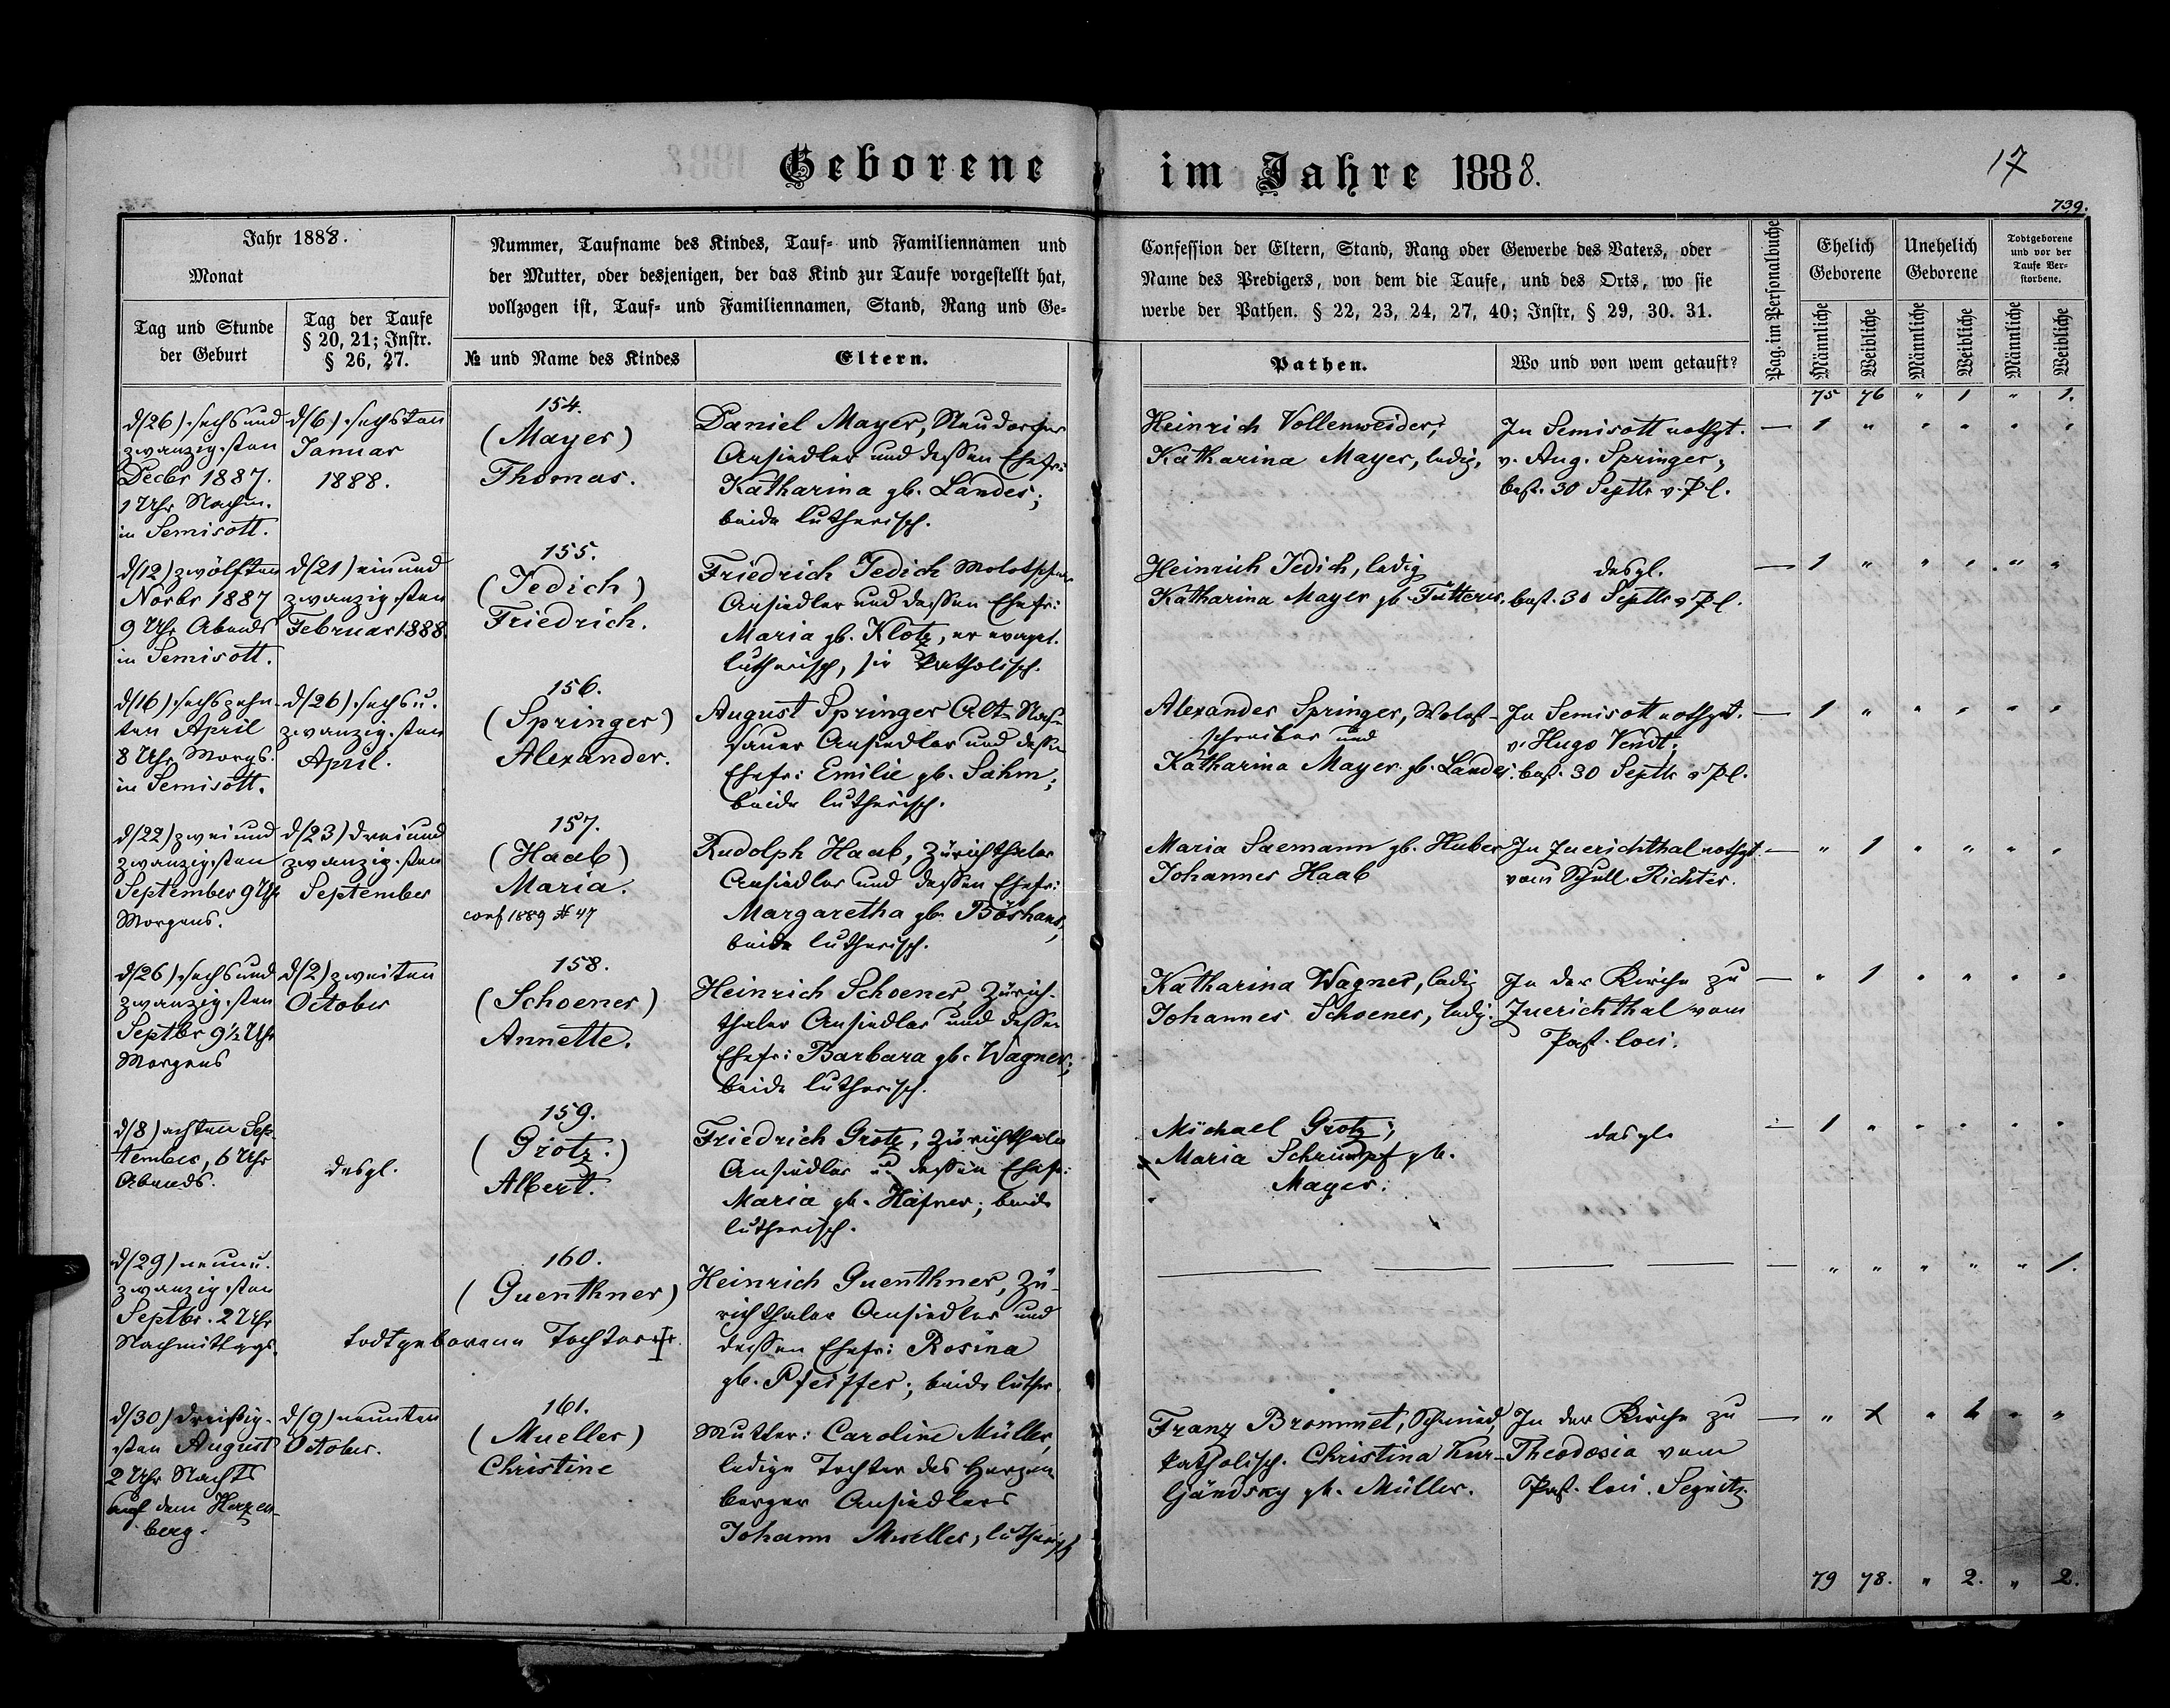 Geborene
im Jahre 1888.
17
739.
Jahr 1888.
Monat
Tag und Stunde
der Geburt
Tag der Taufe
§ 20, 21; Instr.
§ 26, 27.
Nummer, Taufname des Kindes, Tauf- und Familiennamen und
der Mutter, oder desjenigen, der das Kind zur Taufe vorgestellt hat,
vollzogen ist, Tauf- und Familiennamen, Stand, Rang und Ge-
№ und Name des Kindes
Eltern.
Confession der Eltern, Stand, Rang oder Gewerbe des Vaters, oder
Name des Predigers, von dem die Taufe, und des Orts, wo sie
werbe der Pathen. § 22, 23, 24, 27, 40; Instr, § 29, 30. 31.
Pathen.
Wo und von wem getauft?
Pag. im Personalbuche
Ehelich
Geborene
Unehelich
Geborene
Todtgeborene
und vor der
Taufe Ver-
storbene.
Männliche
Weibliche
Männliche
Weibliche
Männliche
Weibliche
75 76 " 1 " 1.
d (26) sechs und
zwanzigsten
Decbr 1887.
1 Uhr Nachm.
in Semisott.
d (6) sechsten
Januar
1888.
154.
(Mayer)
Thomas.
Daniel Mayer, Neudorfer
Ansiedler und dessen Ehefr:
Katharina gb. Landes;
beide lutherisch.
Heinrich Vollenweider;
Katharina Mayer, ledig,
In Semisott nothgt.
v. Aug. Springer,
best. 30 Septbr v. P. l.
— 1 " " " " "
d (12) zwölften
Novbr 1887
9 Uhr Abends
in Semisott.
d (21) ein und
zwanzigsten
Februar 1888.
155.
(Jedich)
Friedrich.
Friedrich Jedich
Ansiedler und dessen Ehefr:
Maria gb. Klotz, er evangel.
lutherisch, sie katholisch.
Heinrich Jedich, ledig
Katharina Mayer gb.
desgl.
best. 30 Septbr v P. l.
— 1 " " " " "
d (16) sechszehn-
ten April
8 Uhr Morgs.
in Semisott.
d (26) sechs u.
zwanzigsten
April.
156.
(Springer)
Alexander.
August Springer Alt-Nas-
sauer Ansiedler und dessen
Ehefr: Emilie gb. Sahm;
beide lutherisch.
Alexander Springer, Wolost-
schreiber und
Katharina Mayer gb. Landes.
In Semisott nothgt.
v. Hugo Vendt;
best. 30 Septbr v P. l.
— 1 " " " " "
d (22) zwei und
zwanzigsten
September 9 Uhr
Morgens.
d (23) drei und
zwanzigsten
September
157.
(Haab)
Maria.
conf 1889 № 47
Rudolph Haab, Zürichthaler
Ansiedler und dessen Ehefr:
Margaretha gb. Böshans,
beide lutherisch.
Maria Saemann gb. Huber
Johannes Haab
In Zuerichthal nothgt
vom Schull. Richter.
— " 1 " " " "
d (26) sechs und
zwanzigsten
Septbr. 9½ Uhr
Morgens
d (2) zweiten
October
158.
(Schoener)
Annette.
Heinrich Schoener, Zürich-
thaler Ansiedler und dessen
Ehefr: Barbara gb. Wagner;
beide lutherisch.
Katharina Wagner, ledig
Johannes Schoener, ledig.
In der Kirche zu
Zuerichthal vom
Past. loci.
— " 1 " " " "
d (8) achten Sep-
tember, 6 Uhr
Abends.
desgl.
159.
(Grotz.)
Albert.
Friedrich Grotz, Zürichthaler
Ansiedler u. dessen Ehefr:
Maria gb. Häfner; beide
lutherisch.
Michael Grotz;
Maria Schrumpf gb.
Mayer.
desgl.
— 1 " " " " "
d (29) neun u.
zwanzigsten
Septbr. 2 Uhr
Nachmittags.
160.
(Guenthner)
todtgeborene Tochter
Heinrich Guenthner, Zü-
richthaler Ansiedler und
dessen Ehefr: Rosina
gb. Pfeiffer; beide luther.
— " " " " " 1.
d (30) dreißig-
sten August
2 Uhr Nachts
auf dem Herzen-
berg.
d (9) neunten
October.
161.
(Mueller)
Christine
Mutter: Caroline Müller,
ledige Tochter des Herzen-
berger Ansiedlers
Johann Mueller, lutherisch
Franz Brommet, Schmied,
katholisch. Christina
gb. Müller.
In der Kirche zu
Theodosia vom
Past. loci. Segnitz.
79 78. " 2. " 2.